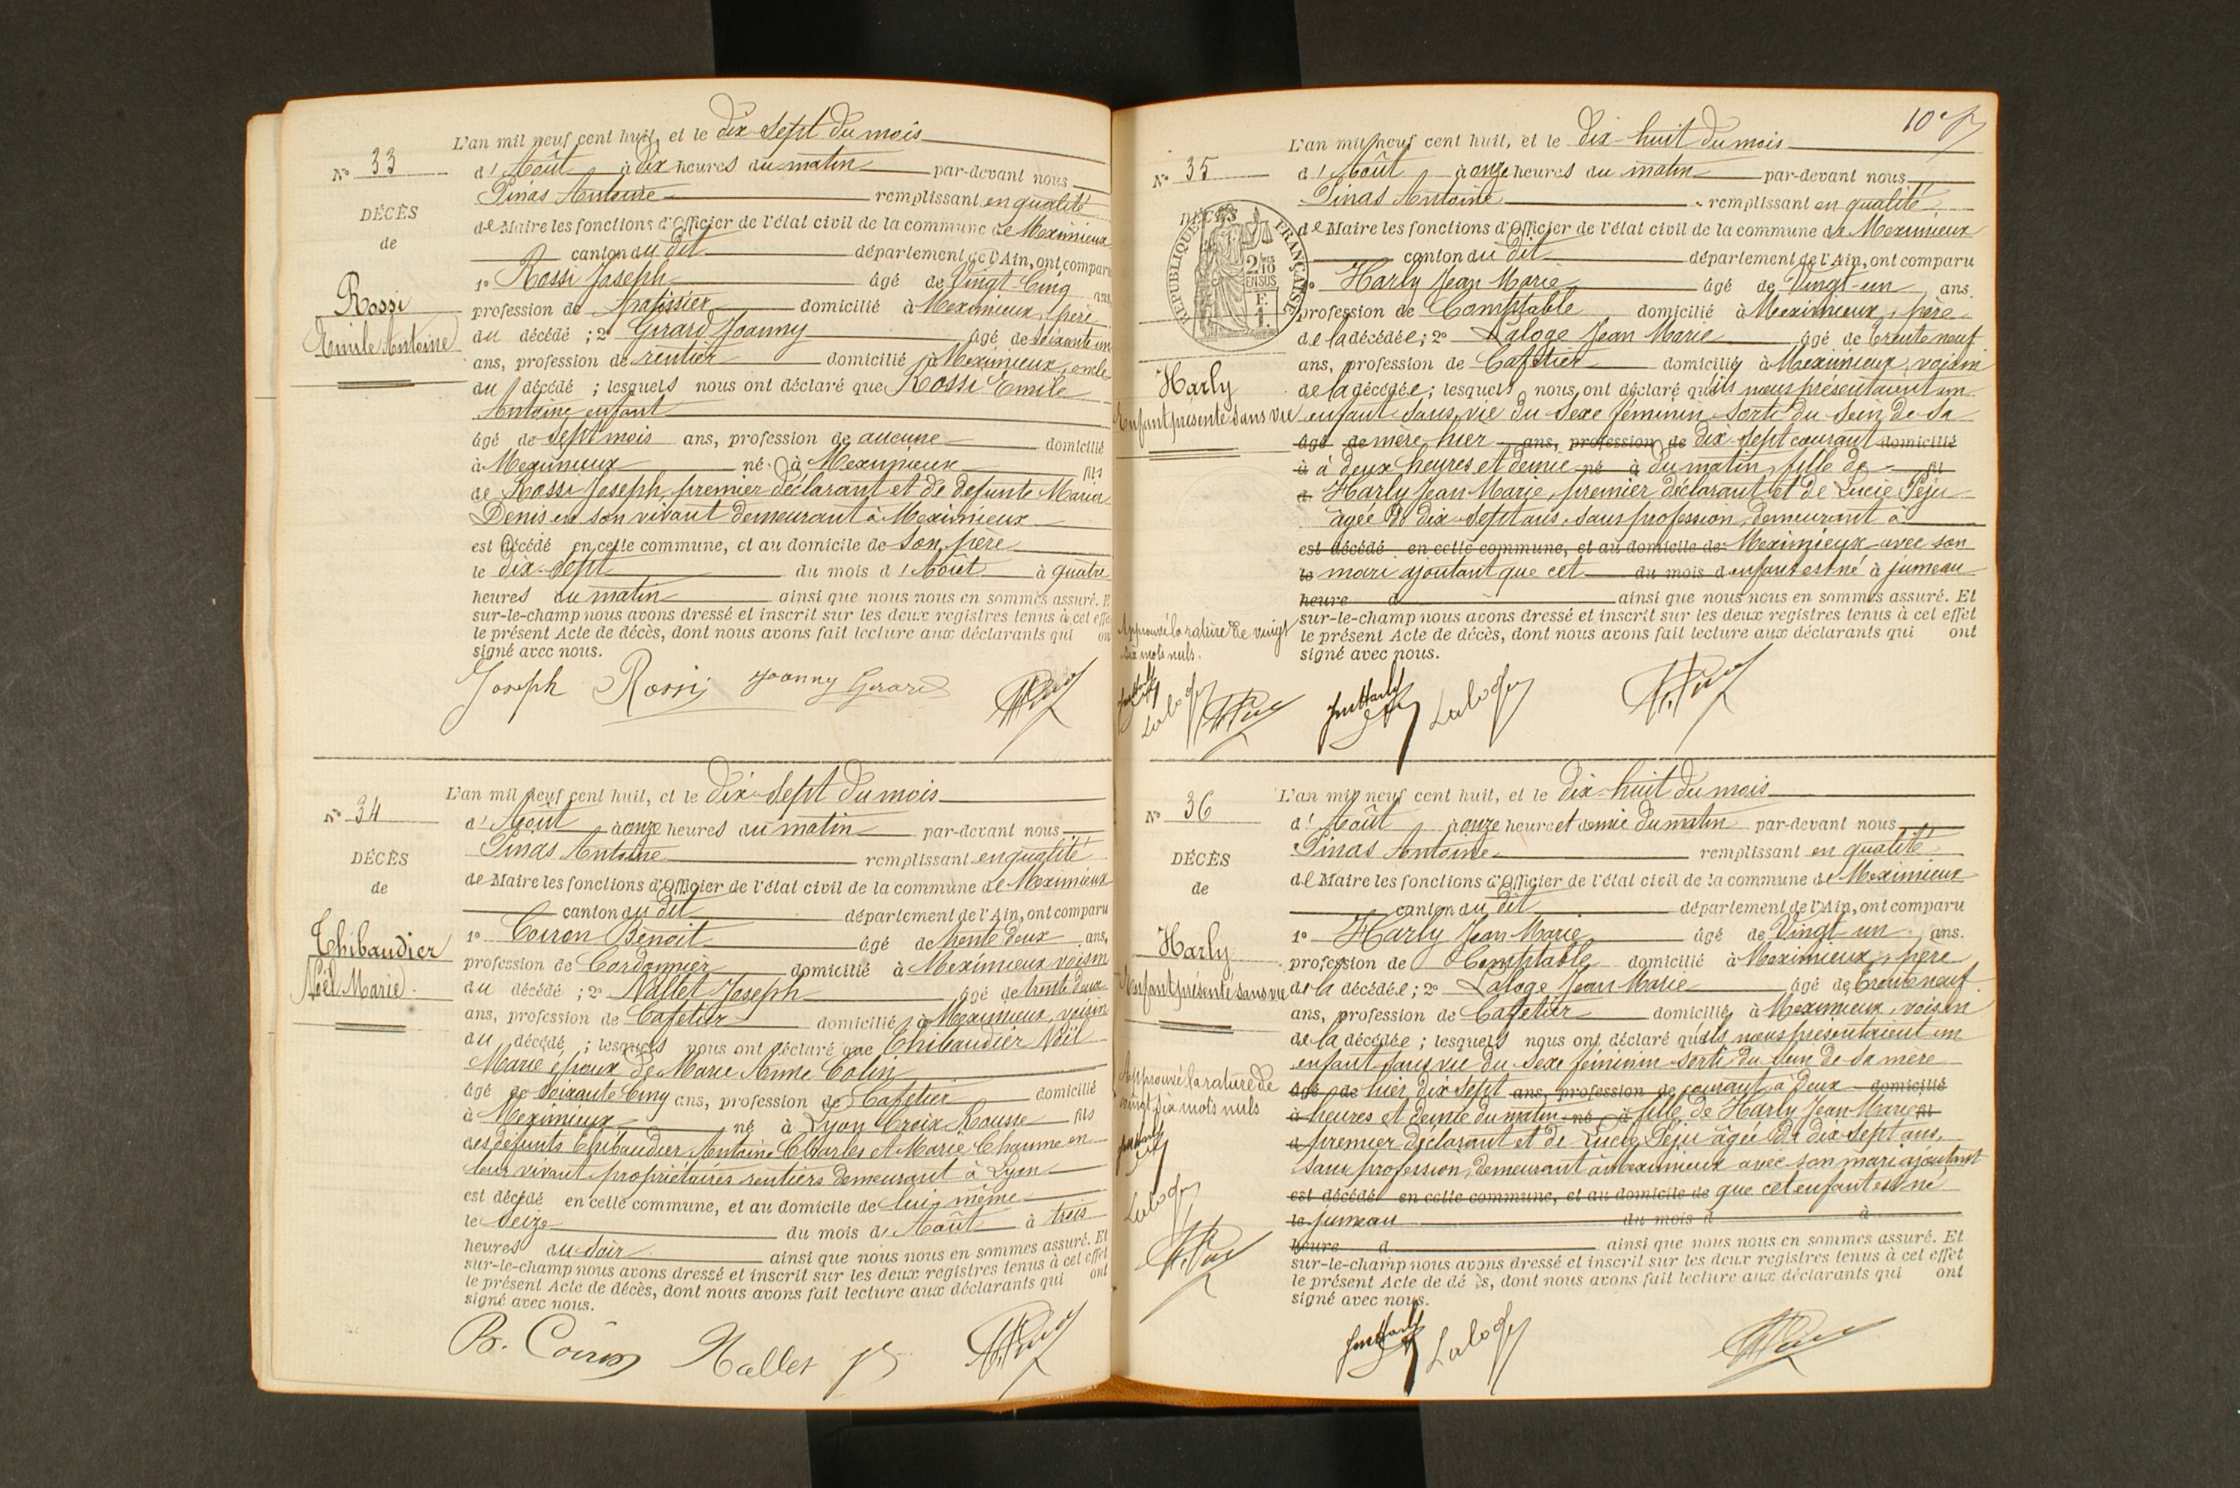 L'an mil neuf cent huit, et le dix-sept du mois
N° 33
d'Août à dix heures du matin par-devant nous
Pinas Antoine remplissant en qualité
DÉCÈS
de Maire les fonctions d'Officier de l'état civil de la commune de Meximieux
de
canton du dit département de l'Ain, ont comparu
1° Rossi Joseph âgé de Vingt-Cinq ans,
Rossi
profession de domicilié à Meximieux, père
Emile Antoine
du décédé ; 2° Girard Joanny âgé de soixante un
ans, profession de rentier domicilié à Meximieux, oncle
du décédé ; lesquels nous ont déclaré que Rossi Emile
Antoine enfant
âgé de sept mois ans, profession de aucune domicilié
à Meximieux né à Meximieux fils
de Rossi Joseph, premier déclarant et de défunte Maria
Denis en son vivant demeurant à Meximieux
est décédé en cette commune, et au domicile de son père
le dix-sept du mois d'Août à quatre
heures du matin ainsi que nous nous en sommes assuré. E
sur-le-champ nous avons dressé et inscrit sur les deux registres tenus à cet effe
le présent Acte de décès, dont nous avons fait lecture aux déclarants qui on
signé avec nous.
Joseph Rossi Joanny Girard
L'an mil neuf cent huit, et le dix-sept du mois
N° 34
d'Août à onze heures du matin par-devant nous
Pinas Antoine remplissant en qualité
DÉCÈS
de Maire les fonctions d'Officier de l'état civil de la commune de Meximieux
de
canton du dit département de l'Ain, ont comparu
1° Coiron Benoit âgé de trente deux ans,
Thibaudier
profession de Cordonnier domicilié à Meximieux voisin
Noël Marie
du décédé ; 2° Nallet Joseph âgé de trente deux
ans, profession de Cafetier domicilié à Meximieux, voisin
du décédé ; lesquels nous ont déclaré que Thibaudier Noël
Marie époux de Marie Anne Colin
âgé de soixante Cinq ans, profession de Cafetier domicilié
à Meximieux né à Lyon Croix Rousse fils
des défunts Thibaudier Antoine Charles et Marie Chaume en
leur vivant propriétaires rentiers demeurant à Lyon
est décédé en cette commune, et au domicile de lui même
le seize du mois d'Août à trois
heures du soir ainsi que nous nous en sommes assuré. Et
sur-le-champ nous avons dressé et inscrit sur les deux registres tenus à cet effet
le présent Acte de décès, dont nous avons fait lecture aux déclarants qui ont
signé avec nous.
B. Coiron Nallet
10e
L'an mil neuf cent huit, et le dix-huit du mois
N° 35
d'Août à onze heures du matin par-devant nous
Pinas Antoine remplissant en qualité
DÉCÈS
RÉPUBLIQUE FRANÇAISE
2/10 EN SUS
de Maire les fonctions d'Officier de l'état civil de la commune de Meximieux
canton du dit département de l'Ain, ont comparu
1° Harly Jean Marie âgé de Vingt-un ans.
profession de Comptable domicilié à Meximieux, père
de la décédée ; 2° Laloge Jean Marie âgé de trente neuf
ans, profession de Cafetier domiciliés à Meximieux, voisin
Harly
de la décédée ; lesquels nous ont déclaré qu'ils nous présentaient un
Enfant présenté sans vie
enfant sans vie du sexe féminin sorti du sein de sa
âgé de mère hier ans, profession de dix-sept courant domicilié
à à deux heures et demie né à du matin, fille de fil
d Harly Jean Marie, premier déclarant et de Lucie Péju
âgée de dix-sept ans, sans profession, demeurant à
est décédé en cette commune, et au domicile de Meximieux avec son
le mari ajoutant que cet du mois d enfant est né à jumeau
heure d ainsi que nous nous en sommes assuré. Et
sur-le-champ nous avons dressé et inscrit sur les deux registres tenus à cet effet
Approuvé la rature de vingt
le présent Acte de décès, dont nous avons fait lecture aux déclarants qui ont
six mots nuls.
signé avec nous.
Laloge
Jm Harly Laloge
L'an mil neuf cent huit, et le dix-huit du mois
N° 36
d'Août à onze heures et demie du matin par-devant nous
Pinas Antoine remplissant en qualité
DÉCÈS
de Maire les fonctions d'Officier de l'état civil de la commune de Meximieux
de
canton du dit département de l'Ain, ont comparu
1° Harly Jean Marie âgé de Vingt un ans.
Harly
profession de Comptable domicilié à Meximieux, père
Enfant présenté sans vie
de la décédée ; 2° Laloge Jean Marie âgé de trente neuf
ans, profession de Cafetier domiciliés à Meximieux, voisin
de la décédée ; lesquels nous ont déclaré qu'ils nous présentaient un
enfant sans vie du sexe féminin sorti du sein de sa mère
Approuvé la rature de
âgé de hier dix-sept ans, profession de courant à deux domicilié
vingt six mots nuls
à heures et demie du matin né à fille de Harly Jean Marie fil
d premier déclarant et de Lucie Péju âgée de dix-sept ans,
sans profession, demeurant à Meximieux avec son mari ajoutant
est décédé en cette commune, et au domicile de que cet enfant est né
Laloge
le jumeau du mois d à
heure d ainsi que nous nous en sommes assuré. Et
sur-le-champ nous avons dressé et inscrit sur les deux registres tenus à cet effet
le présent Acte de dé ès, dont nous avons fait lecture aux déclarants qui ont
signé avec nous.
Jm Harly Laloge